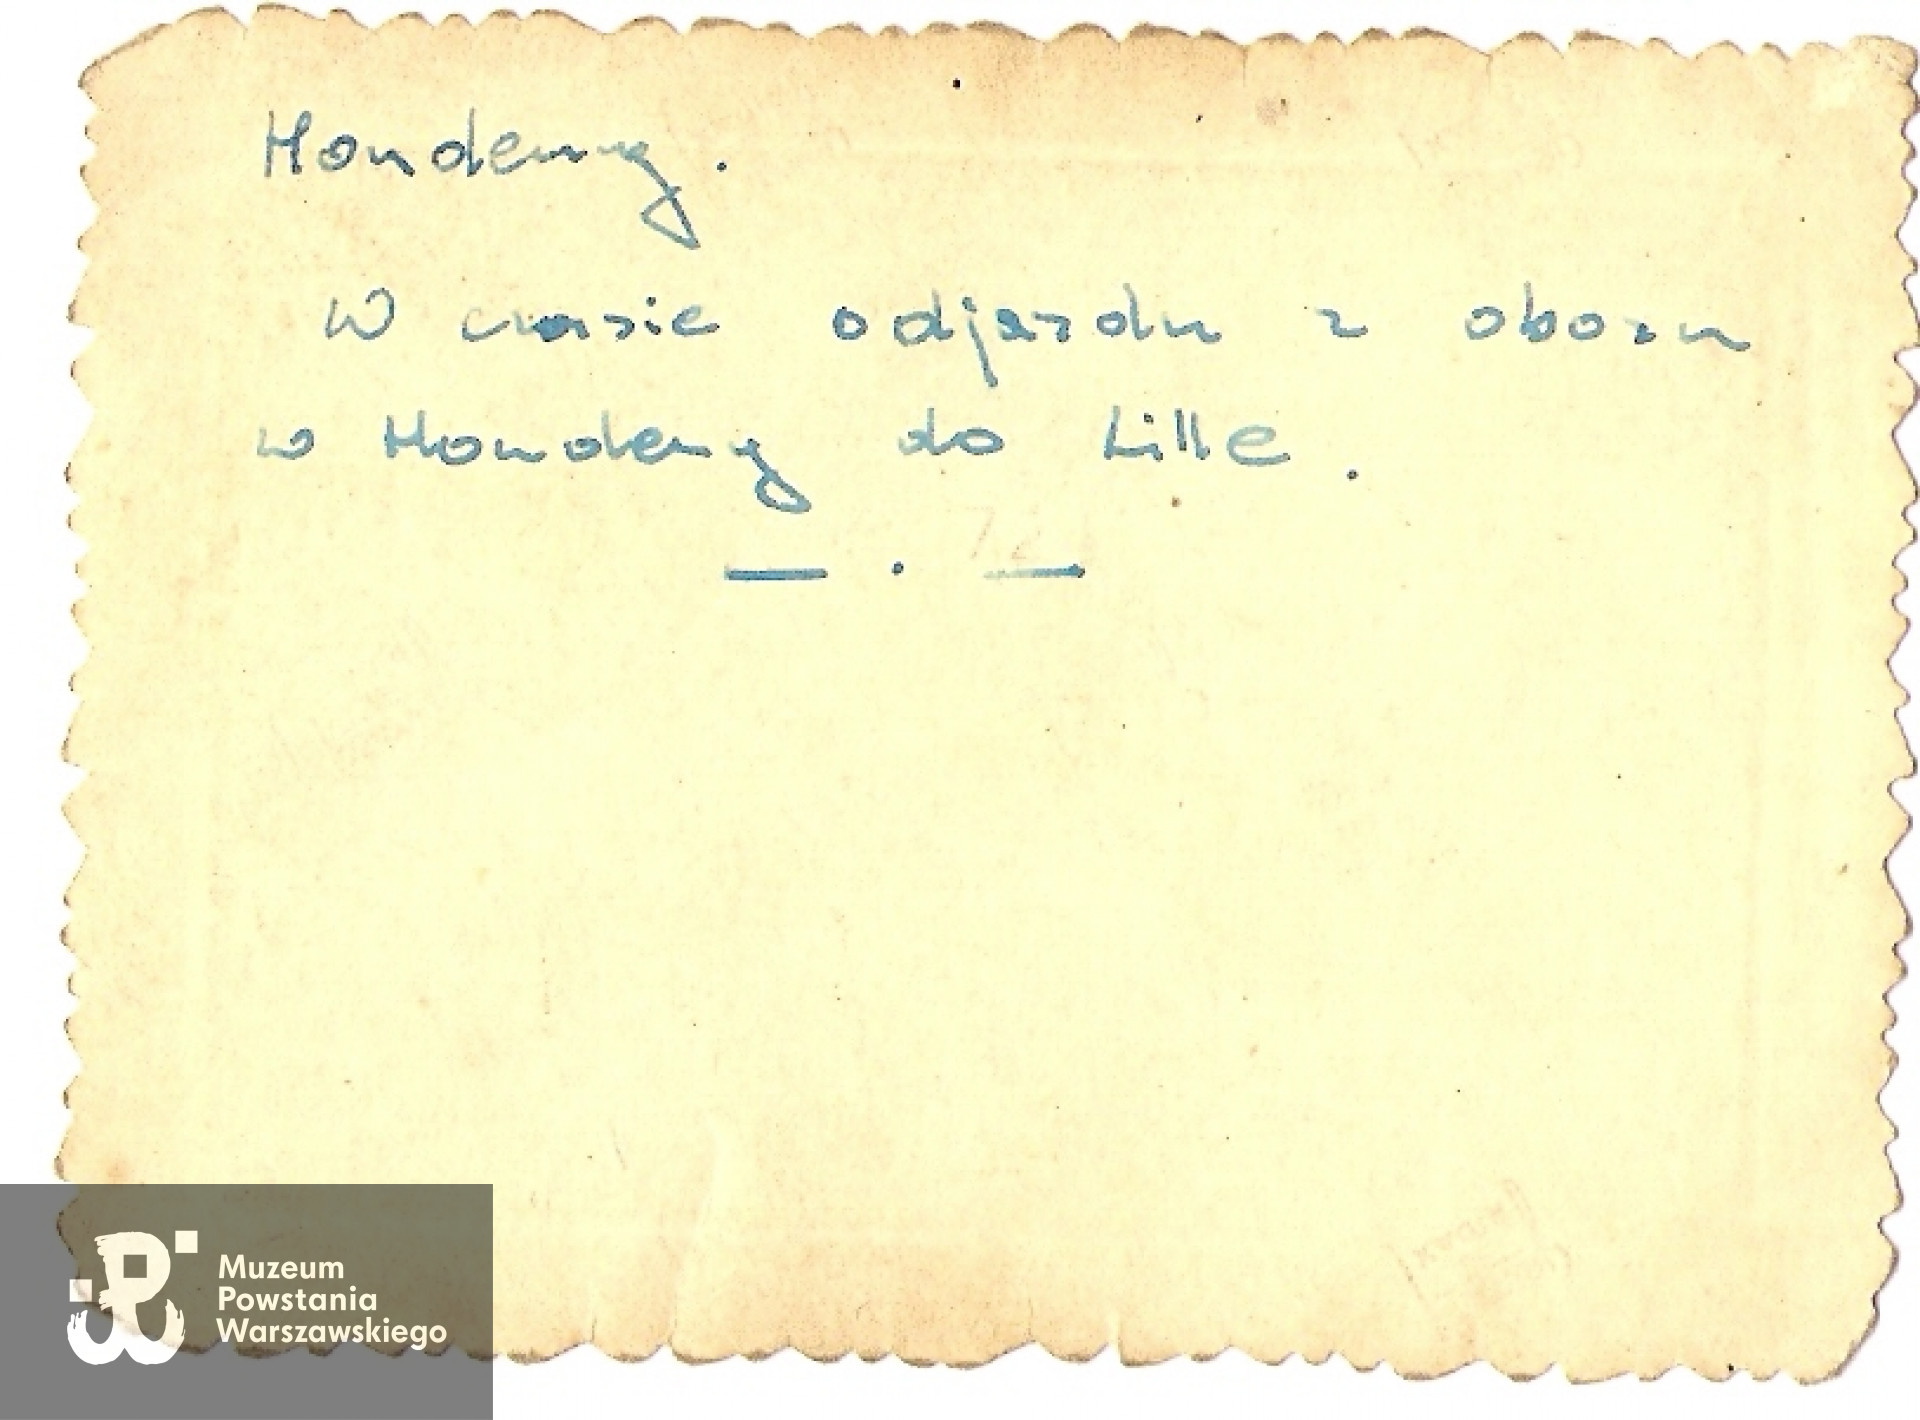 Hondemy.
W czasie odjazdu z obozu
w Hondemy do Lille.
— . —
Muzeum
Powstania
Warszawskiego